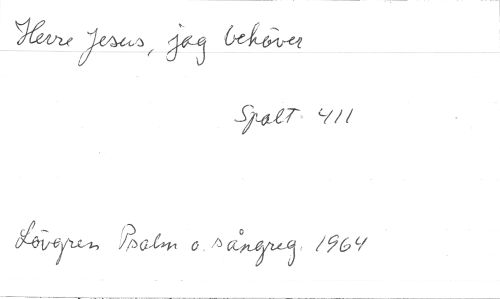 Herre Jesus, jag behöver
Spalt 411
Lövgren Psalm o. sångreg. 1964